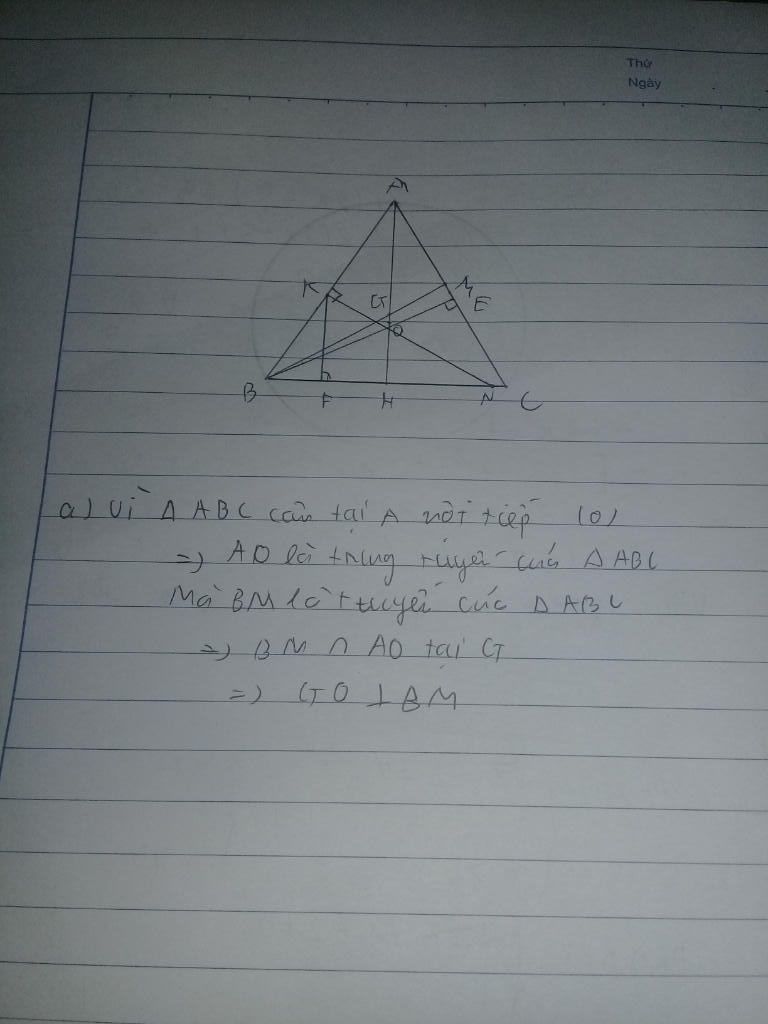 Thứ
Ngày
A
K
M
G
E
O
B
F
H
N
C
a) Vì Δ ABC cân tại A nội tiếp (O)
=) AO là trung tuyến của Δ ABC
Mà BM là t tuyến của Δ ABC
=) BM ∩ AO tại G
=) GO ⊥ BM